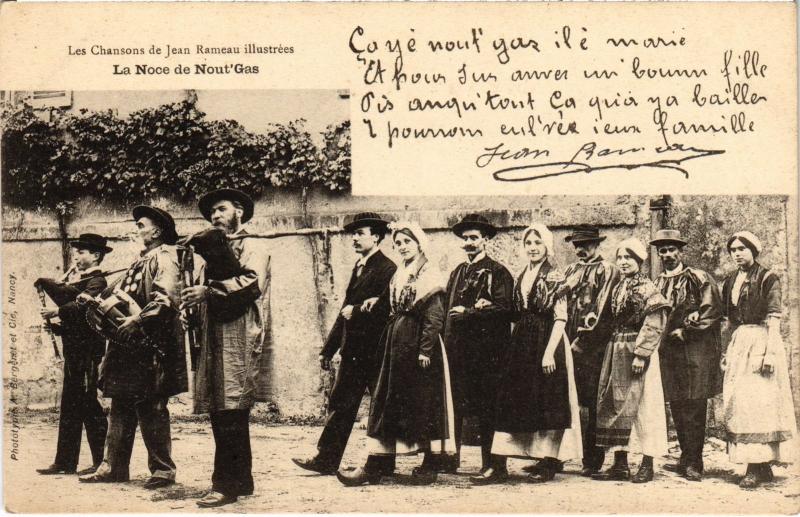 Les Chansons de Jean Rameau illustrées
La Noce de Nout'Gas
Ça yè nout' gas il è marié
Et pour sus anver un' bounn fille
Pis anqu' tout Ça qui a ya bailler
I pourront eul'vée ieux famille
Jean Rameau
Phototypie A. Bergeret et Cie, Nancy.